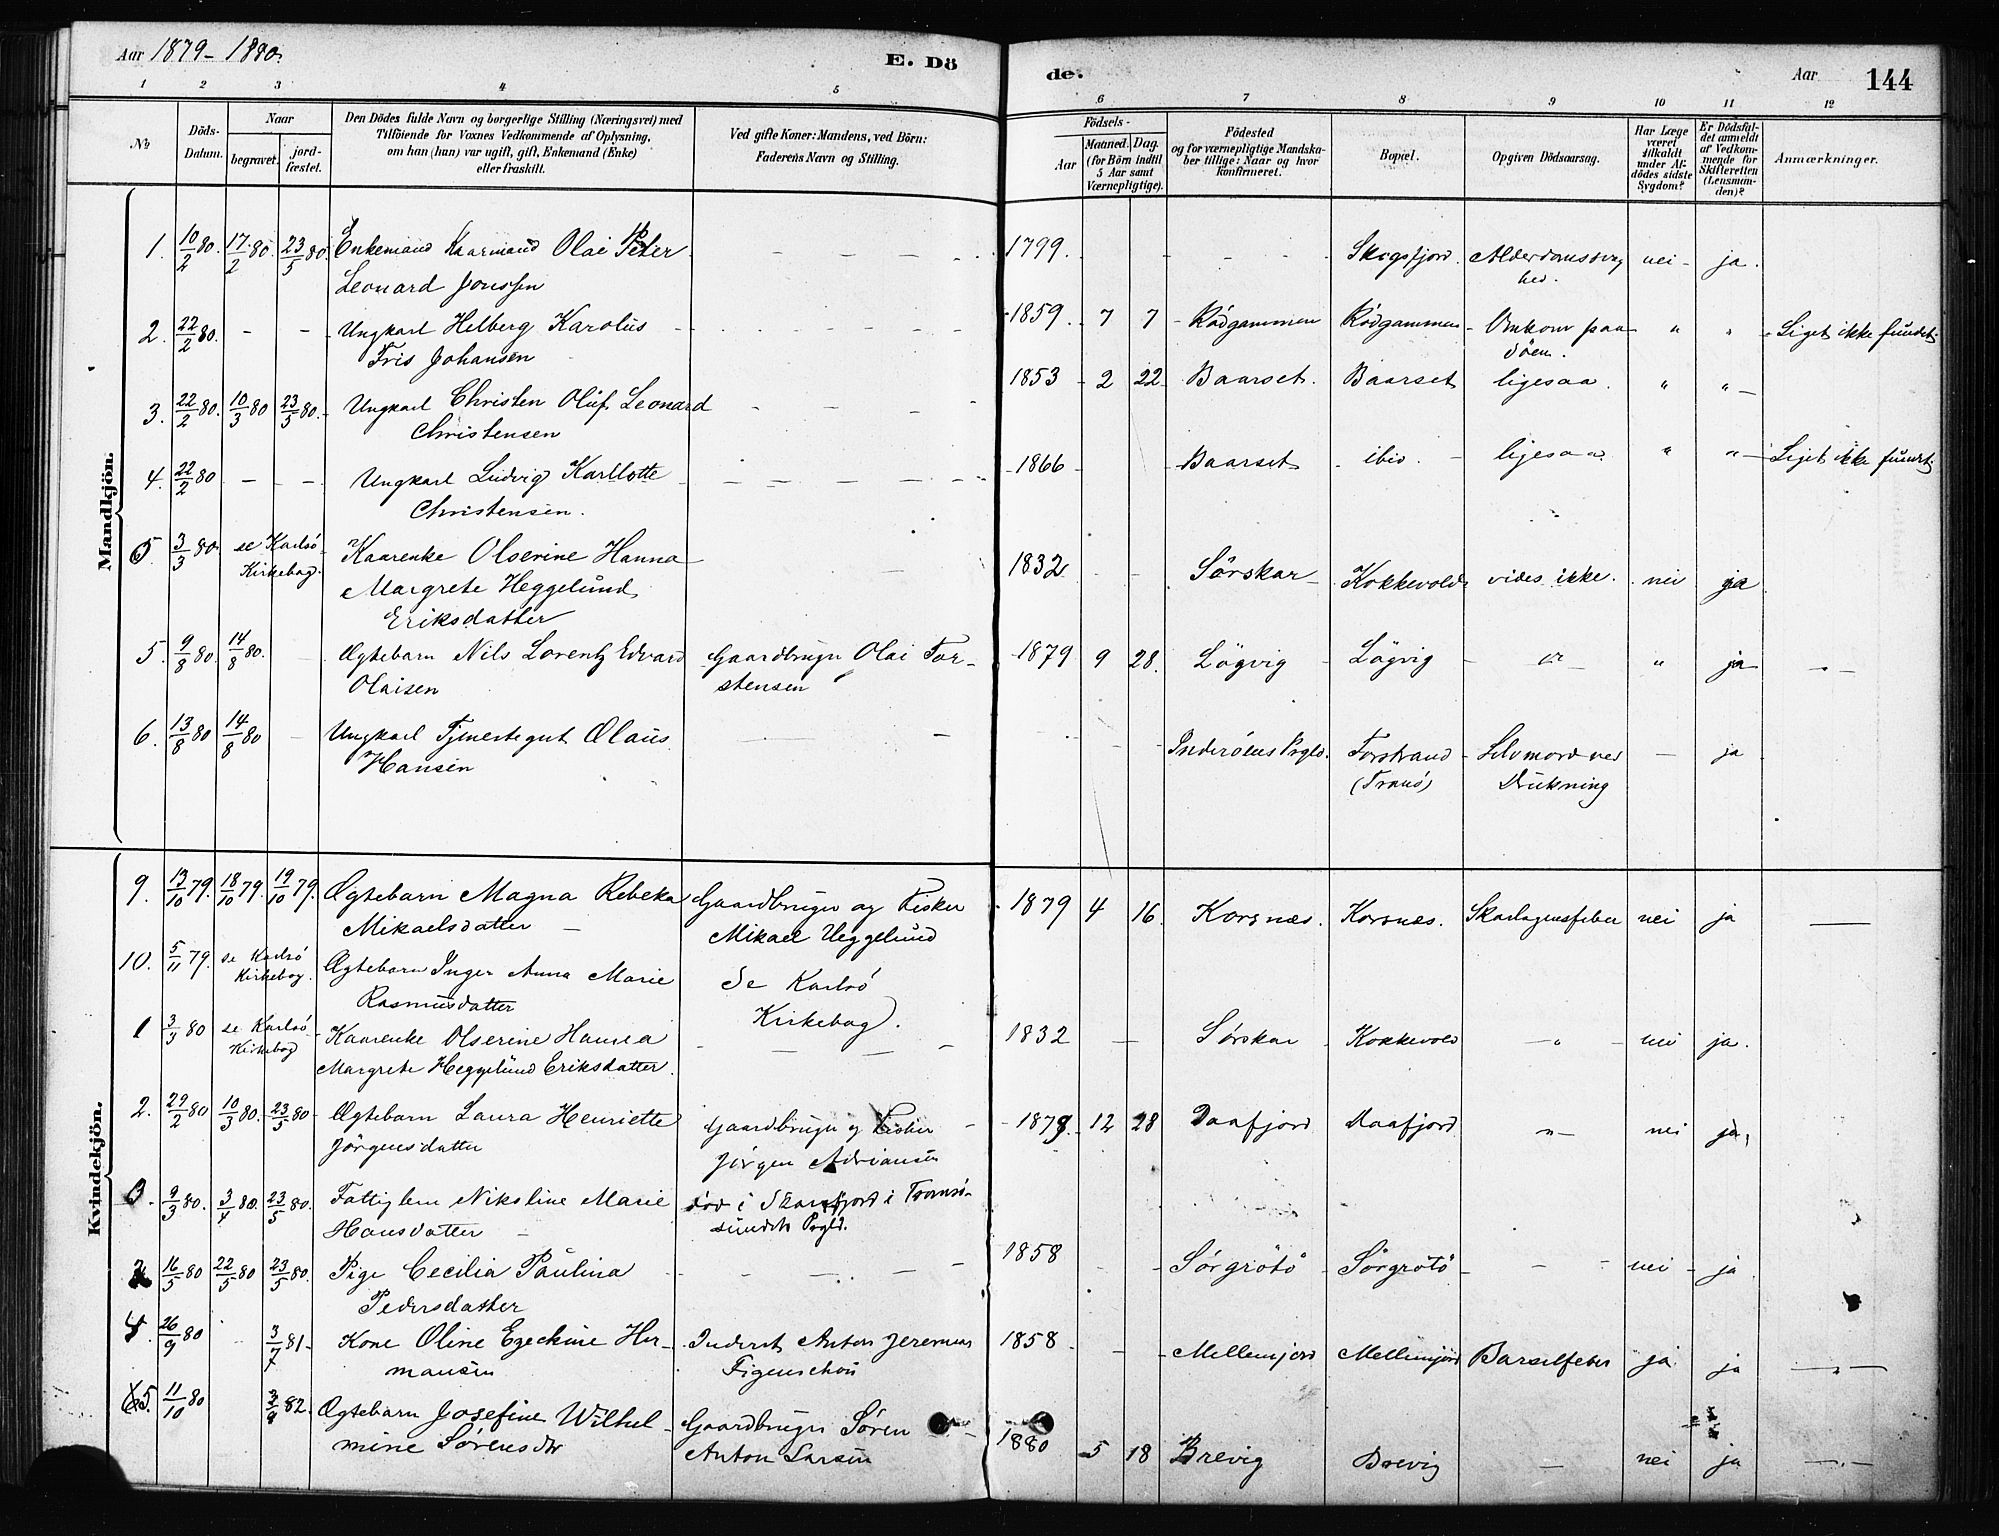 Aar 1879-1880. E. Dö de. Aar 144
1 2 3 4 5 6 7 8 9 10 11 12
No Döds-Datum. Naar begravet. jord-fæstet. Den Dödes fulde Navn og borgerlige Stilling (Næringsvei) med Tilföiende for Voxnes Vedkommende af Oplysning, om han (hun) var ugift, gift, Enkemand (Enke) eller fraskilt. Ved gifte Koner: Mandens, ved Börn: Faderens Navn og Stilling. Födsels- Aar Maaned. Dag. (for Börn indtil 5 Aar samt Værnepligtige). Födested og for værnepligtige Mandskaber tillige: Naar og hvor konfirmeret. Bopæl. Opgiven Dödsaarsag. Har Læge været tilkaldt under Afdödes sidste Sygdom? Er Dödsfaldet anmeldt af Vedkommende for Skifteretten (Lensmanden)? Anmærkninger.
Mandkjön.
1. 10/2 80. 17/2 80. 23/5 80. Enkemand Kaarmand Olai Peter - 1799. - Skogsfjord. Alderdomssvag nei - ja.
Leonard Jonssen hed.
2. 22/2 80. - - Ungkarl Helberg Karolus - 1859. 7 7 Rödgammen Rödgammen Omkom paa " " Liget ikke fundet.
Fris Johansen Söen.
3. 22/2 80. 10/3 80 23/5 80. Ungkarl Christen Oluf Leonard - 1853 2 22 Baarset. Baarset ligesaa. " "
Christensen
4. 22/2 80 - - Ungkarl Ludvig Karllotte - 1866 - Baarset ibid. ligesaa. " " Liget ikke fundet
Christensen.
5 3/3 80. se Karlsö Kaarenke Olserine Hanna - 1832 - Sörskar Kokkevold vides ikke. nei ja
Kirkebog. Margrete Heggelund
Eriksdatter
5. 9/8 80. 14/8 80. Ægtebarn Nils Lorentz Edvard Gaardbruger Olai Tor- 1879 9 28. Lögvig Lögvig " " ja
Olaisen stensen
6. 13/8 80 14/8 80 - Ungkarl Tjenestegut Olaus - Inderöens Prgld. Forstrand Selvmord ved - ja
Hansen (Tranö) Drukning
Kvindekjön.
9. 13/10 79. 18/10 79. 19/10 79. Ægtebarn Magna Rebeka Gaardbruger og Fisker 1879 4 16. Korsnæs. Korsnæs. Skarlagensfeber nei ja
Mikaelsdatter Mikael Heggelund
10. 5/11 79. se Karlsö Ægtebarn Inger Anna Marie Se Karlsö
Kirkebog. Rasmusdatter Kirkebog.
1 3/3 80 se Karlsö Kaarenke Olserine Hanna - 1832 - Sörskar Kokkevold " nei ja.
Kirkebog Margrete Heggelund Eriksdatter.
2. 29/2 80 10/3 80. 23/5 80 Ægtebarn Laura Henriette Gaardbruger og Fisker 1879. 12 28 Daafjord Daafjord " nei ja,
Jörgensdatter Jörgen Adriansen
3. 9/3 80. 3/4 80. 23/5 80. Fattiglem Nikoline Marie död i Skarsfjord i Tromsö-
Hansdatter sundets Prgld.
16/5 80 22/5 80 23/5 80. Pige Cecilia Paulina - 1858 - Sörgrötö Sörgrötö - nei ja
Pedersdatter
4. 26/9 80 3/7 81 Kone Oline Ezechine Her- Inderst Anton Jeremias 1858 - Mellemjord Mellemjord Barselfeber ja ja
mansen Figenschou
5. 11/10 80 82. Ægtebarn Josefine Wilhel- Gaardbruger Sören 1880 5 18 Brevig Brevig - nei ja
mine Sörensdtr Anton Larsen